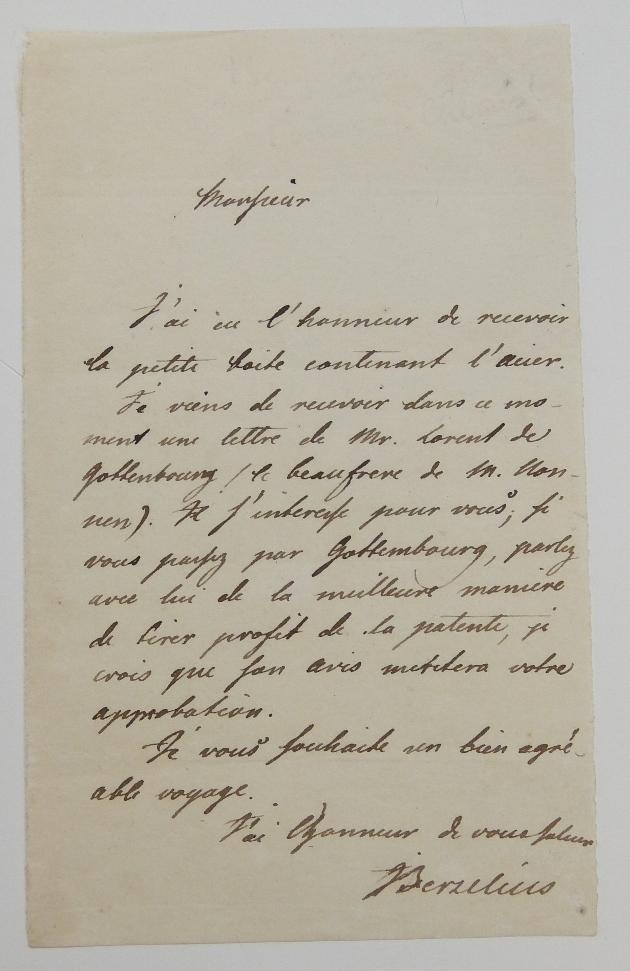 Monsieur
J'ai eu l'honneur de recevoir
la petite boite contenant l'acier.
Je viens de recevoir dans ce mo-
ment une lettre de Mr. Lorent de
Gottenbourg (le beaufrere de M. Non-
nen). Il s'interesse pour vous; si
vous passez par Gottembourg, parlez
avec lui de la meilleure manière
de tirer profit de la patente, je
crois que son avis meritera votre
approbation.
Je vous souhaite un bien agré-
able voyage.
J'ai l'honneur de vous saluer
JBerzelius